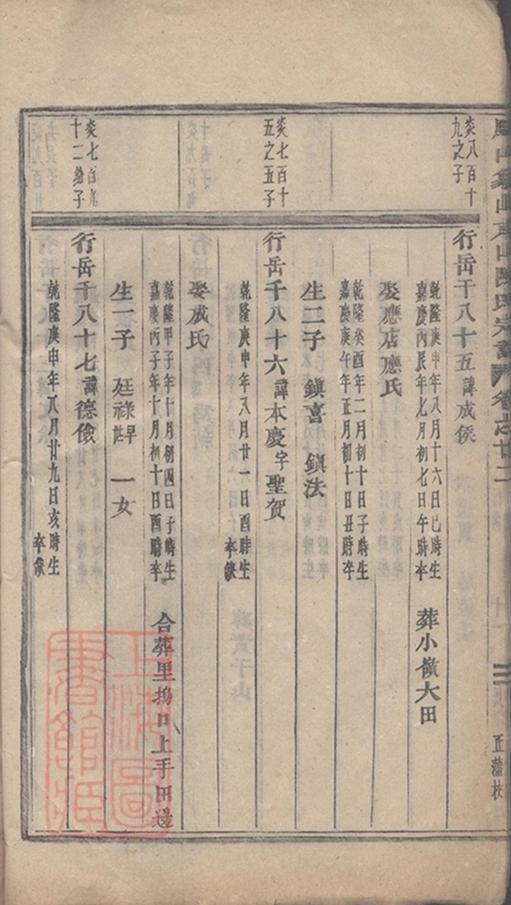 山陳氏宗譜 卷之廿二
炎八百十
九之子
行岳千八十五諱成侯
乾隆庚申年八月十六日巳時生
嘉慶丙辰年七月初七日午時卒
葬小嶺大田
娶應店應氏
乾隆癸酉年二月初十日子時生
嘉慶庚午年五月初十日丑時卒
生二子 鎮喜 鎮法
炎七百十
五之五子
行岳千八十六諱本慶字聖賀
乾隆庚申年八月廿一日酉時生
卒缺
娶成氏
乾隆甲子年十月初四日子時生
嘉慶丙子年十月初十日酉時卒
合葬里塢口上手田邊
生一子 廷祿 一女
炎七百九
十二繼子
行岳千八十七諱德儉
乾隆庚申年八月廿九日亥時生
卒缺
上海圖
書館藏